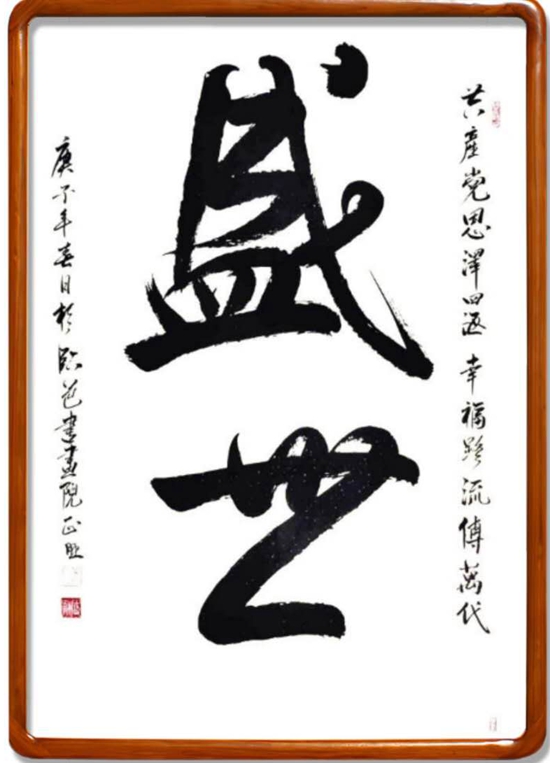 共產党恩澤四海 幸福路流傳萬代
盛世
庚子年春日於臨邑書畫院正